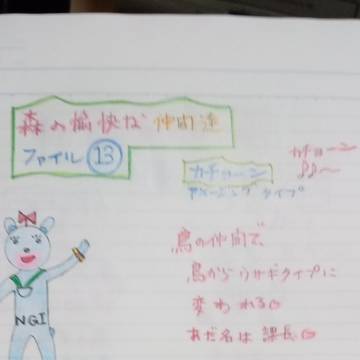 森の愉快な仲間達
ファイル⑬
カチョーン
アメージングタイプ
カチョーン
鳥の仲間で
鳥からウサギタイプに
変われる
あだ名は課長
NGI